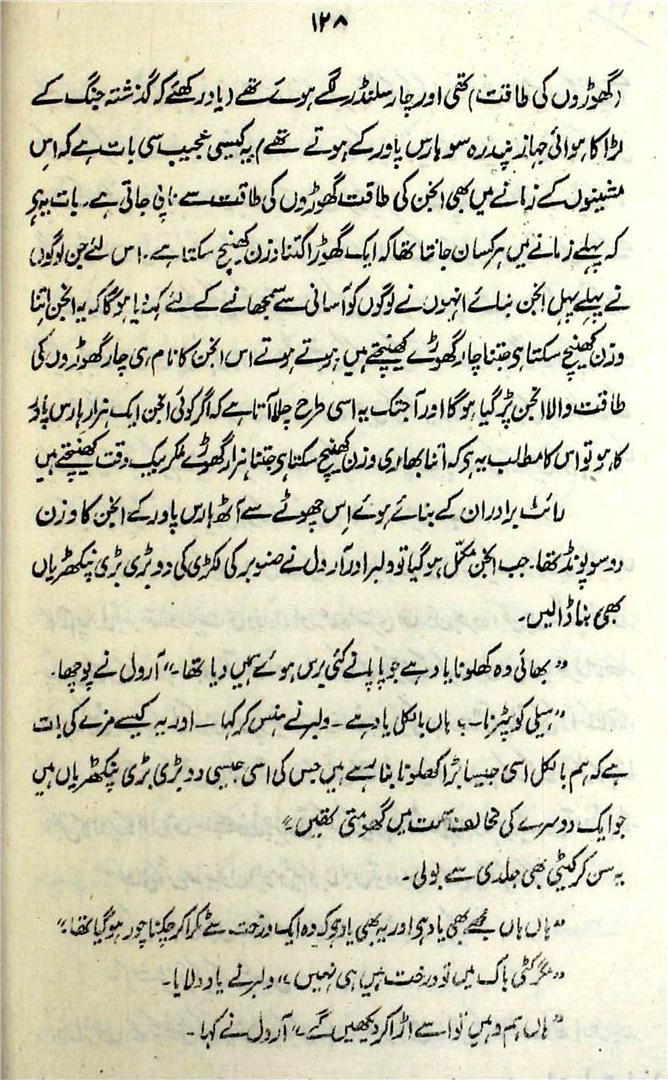 ۱۲۸
(گھوڑوں کی طاقت) تھی اور چار سلنڈر لگے ہوئے تھے (یاد رکھئے کہ گذشتہ جنگ کے
لڑاکا ہوائی جہاز پندرہ سو ہارس پاور کے ہوتے تھے) یہ کیسی عجیب سی بات ہے کہ اس
مشینوں کے زمانے میں بھی انجن کی طاقت گھوڑوں کی طاقت سے ناپی جاتی ہے۔ بات یہ ہے
کہ پہلے زمانے میں ہر کسان جانتا تھا کہ ایک گھوڑا کتنا وزن کھینچ سکتا ہے۔ اس لئے جن لوگوں
نے پہلے پہل انجن بنائے انہوں نے لوگوں کو آسانی سے سمجھانے کے لئے کہدیا ہوگا کہ یہ انجن اتنا
وزن کھینچ سکتا ہے جتنا چار گھوڑے کھینچتے ہیں۔ ہوتے ہوتے اس انجن کا نام ہی چار گھوڑوں کی
طاقت والا انجن پڑ گیا ہوگا اور آجتک یہ اسی طرح چلا آتا ہے کہ اگر کوئی انجن ایک ہزار ہارس پاور
کا ہو تو اس کا مطلب یہ ہے کہ اتنا بھاری وزن کھینچ سکتا ہے جتنا ہزار گھوڑے ملکر بیک وقت کھینچتے ہیں
رائٹ برادران کے بنائے ہوئے اس چھوٹے سے آٹھ ہارس پاور کے انجن کا وزن
دو سو پونڈ تھا۔ جب انجن مکمل ہو گیا تو ولبر اور آرول نے صنوبر کی لکڑی کی دو بڑی بڑی پنکھڑیاں
بھی بنا ڈالیں۔
"بھائی وہ کھلونا یاد ہے جو پاپا نے کئی برس ہوئے ہمیں دیا تھا۔" آرول نے پوچھا۔
"ہیلی کوپٹر نا۔ ہاں بالکل یاد ہے۔ ولبر نے ہنس کر کہا ۔ اور یہ کیسے مزے کی بات
ہے کہ ہم بالکل اسی جیسا بڑا کھلونا بنا رہے ہیں جس کی اسی جیسی دو بڑی بڑی پنکھڑیاں ہیں
جو ایک دوسرے کی مخالف سمت میں گھومتی تھیں"
یہ سن کر کیٹی بھی جلدی سے بولی۔
"ہاں ہاں مجھے بھی یاد ہے اور یہ بھی یاد ہے کہ وہ ایک درخت سے ٹکرا کر چکنا چور ہو گیا تھا"
"مگر کٹی ہاک میں تو درخت ہیں ہی نہیں" ولبر نے یاد دلایا۔
"ہاں ہم وہیں تو اسے اڑا کر دیکھیں گے" آرول نے کہا۔